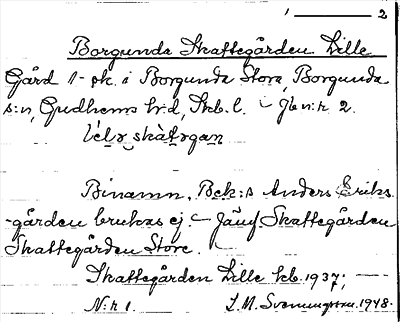 1 — 2
Borgunda Skattegården Lille
Gård 1 sk. i Borgunda Stora, Borgunda
s:n, Gudhems hrd, Skb. l. — Jb n:r 2.
Binamn. Bek:s Anders Eriks
-gården brukas ej. — Jämf. Skattegården
Skattegården Store.
Skattegården Lille kb. 1937; —
N:r 1. J. M. Svenningsson. 1948.